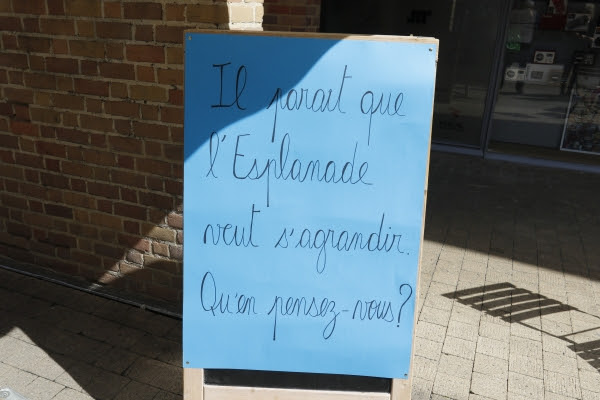 Il parait que
l'Esplanade
veut s'agrandir.
Qu'en pensez-vous?